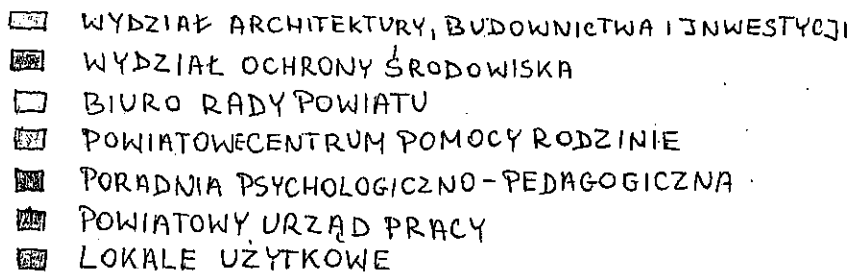 WYDZIAŁ ARCHITEKTURY, BUDOWNICTWA I INWESTYCJI
WYDZIAŁ OCHRONY ŚRODOWISKA
BIURO RADY POWIATU
POWIATOWE CENTRUM POMOCY RODZINIE
PORADNIA PSYCHOLOGICZNO-PEDAGOGICZNA
POWIATOWY URZĄD PRACY
LOKALE UŻYTKOWE